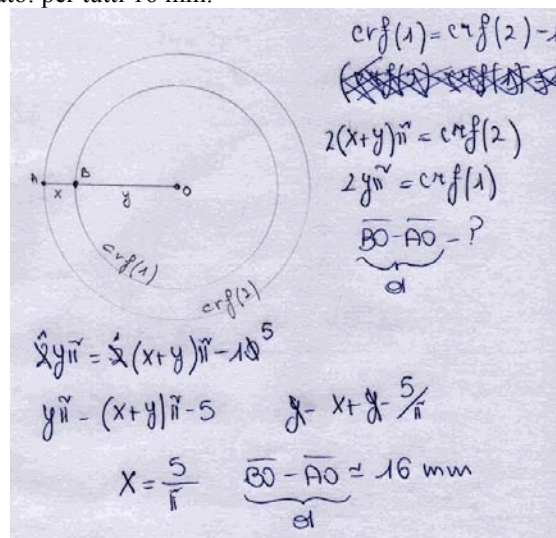 per tutti 16 mm.
crf(1) = crf(2) - 1
2(x+y)π = crf(2)
2yπ = crf(1)
A x B y O
BO - AO = ?
d
crf(1)
crf(2)
2yπ = 2(x+y)π - 10 5
yπ = (x+y)π - 5
y = x + y - 5/π
x = 5/π
BO - AO ≃ 16 mm
d